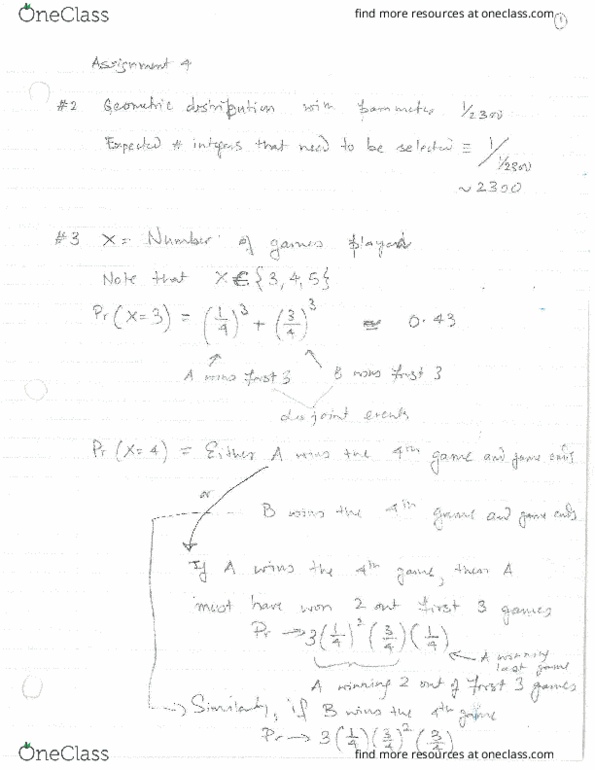 OneClass
find more resources at oneclass.com
1
Assignment 4
#2 Geometric distribution with parameter 1/2300
Expected # integers that need to be selected ≡ 1/1/2300
~ 2300
#3 X = Number of games played
Note that X ∈ {3, 4, 5}
Pr (X=3) = (1/4)^3 + (3/4)^3 ≈ 0.43
A wins first 3 B wins first 3
disjoint events
Pr (X=4) = Either A wins the 4th game and game ends
or
B wins the 4th game and game ends
If A wins the 4th game, then A
must have won 2 out first 3 games
Pr → 3 (1/4)^2 (3/4) (1/4)
A winning
last game
A winning 2 out of first 3 games
→ Similarly, if B wins the 4th game
Pr → 3 (1/4) (3/4)^2 (3/4)
OneClass
find more resources at oneclass.com